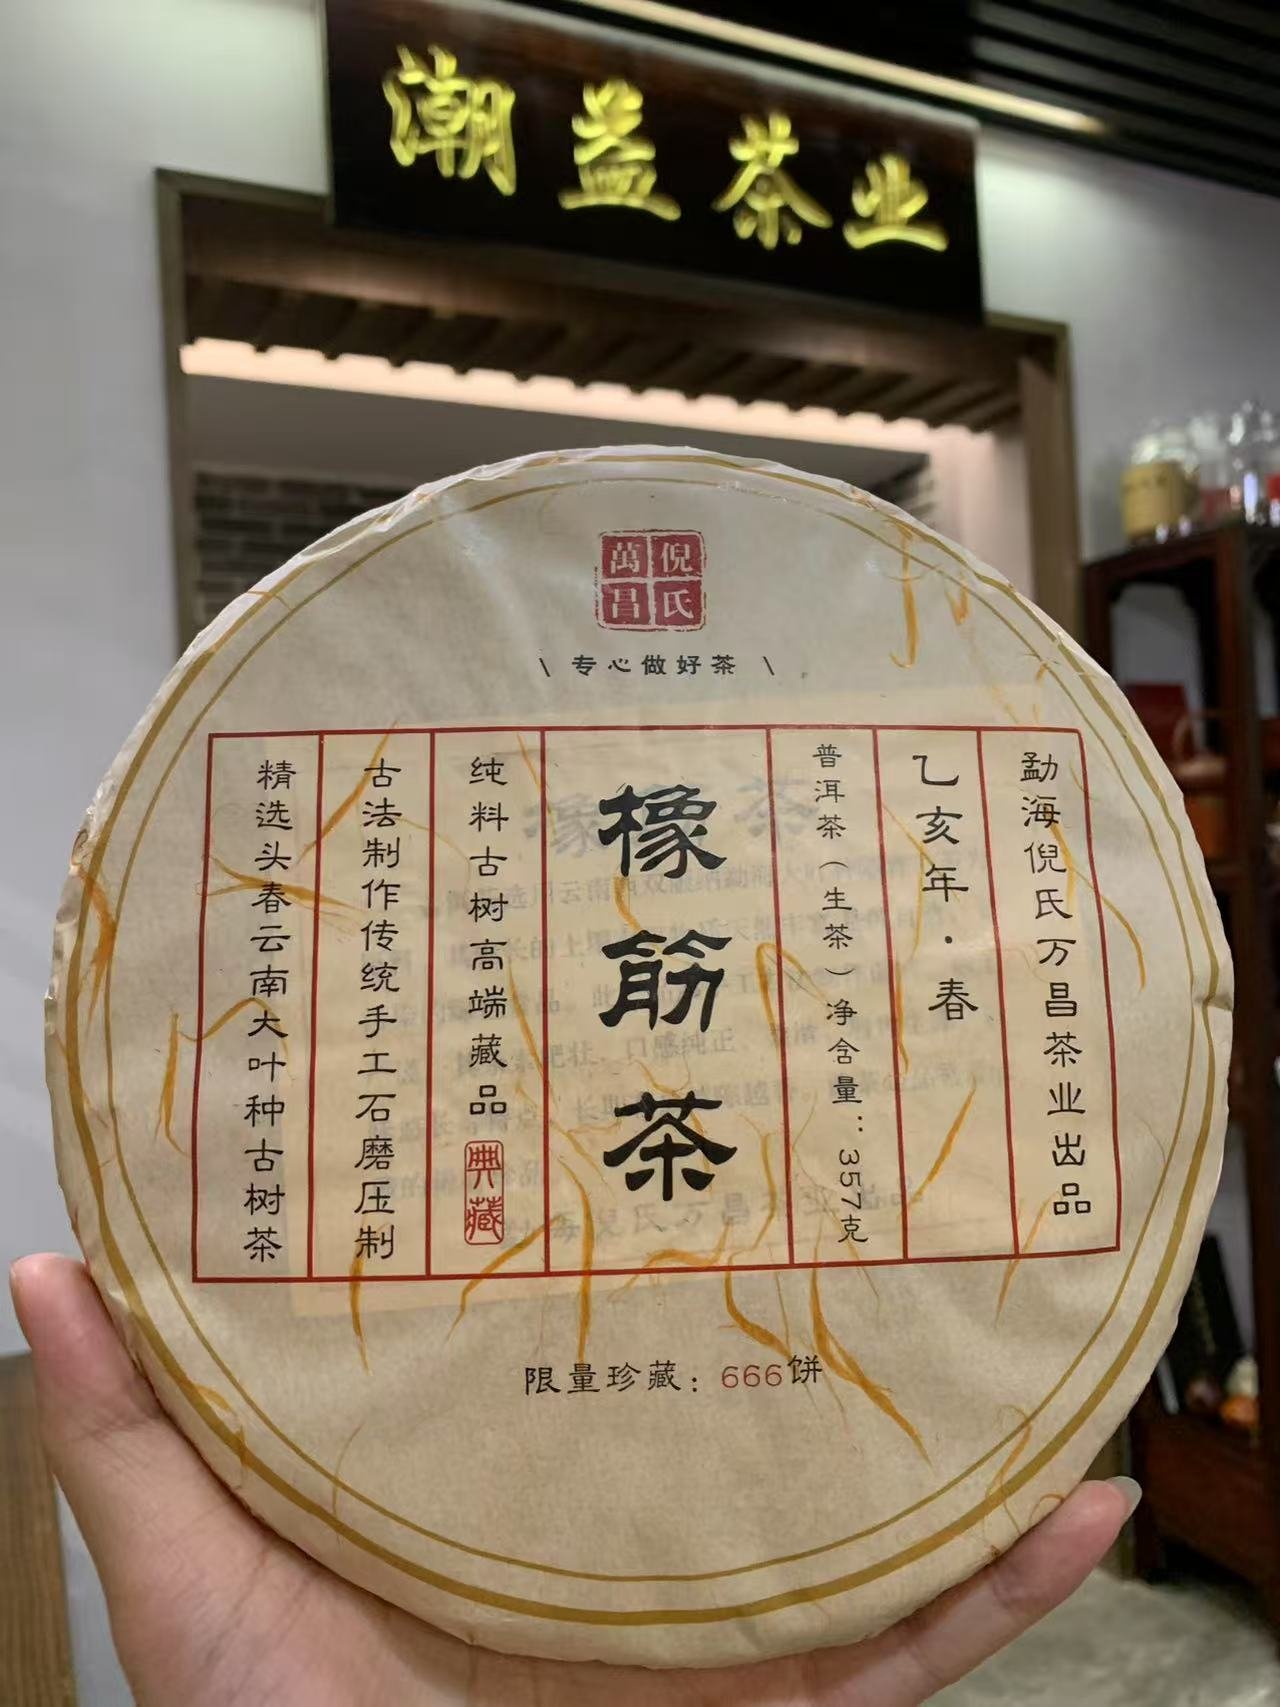 潮益茶业
倪氏
萬昌
\ 专心做好茶 \
勐海倪氏万昌茶业出品
乙亥年·春
普洱茶（生茶）净含量：357克
橡筋茶
纯料古树高端藏品
典藏
古法制作传统手工石磨压制
精选头春云南大叶种古树茶
限量珍藏：666饼